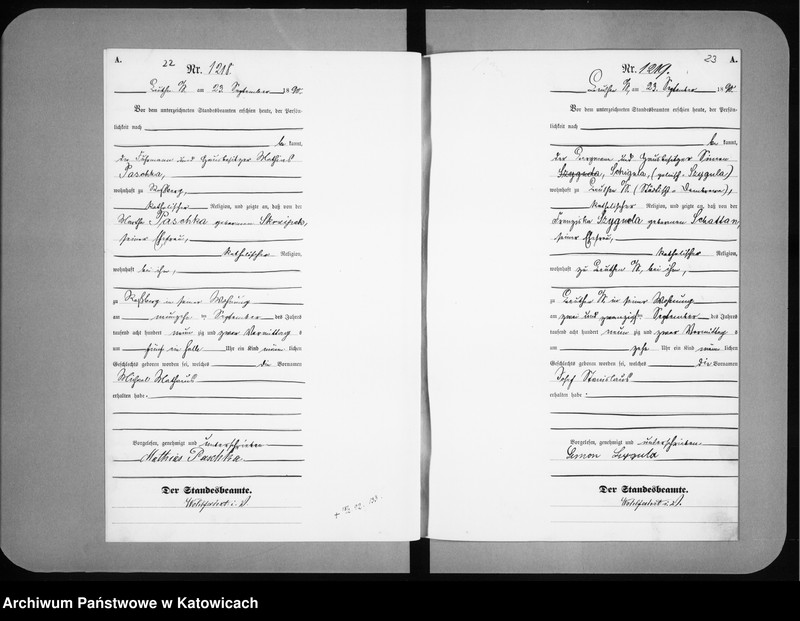 A.
22
Nr. 1218.
Beuthen O/S am 23. September 1890.
Vor dem unterzeichneten Standesbeamten erschien heute, der Persön-
lichkeit nach
be kannt,
der und Hausbesitzer Mathias
Paschka,
wohnhaft zu Roßberg,
katholischer Religion, und zeigte an, daß von der
Martha Paschka geborenen
seiner Ehefrau,
katholischer Religion,
wohnhaft bei ihm,
zu Roßberg in seiner Wohnung
am September des Jahres
tausend acht hundert neun zig und zwar Vormittag s
um fünf ein halb Uhr ein Kind männ lichen
Geschlechts geboren worden sei, welches die Vornamen
Michael Mathäus
erhalten habe.
Vorgelesen, genehmigt und unterschrieben
Mathias Paschka
Der Standesbeamte.
i. V.
23
A.
Nr. 1219.
Beuthen O/S, am 23. September 1890.
Vor dem unterzeichneten Standesbeamten erschien heute, der Persön-
lichkeit nach
be kannt,
der Bergmann und Hausbesitzer Simon
Szyguda, Schigula, (polnisch: Szygula)
wohnhaft zu Beuthen O/S (Städtisch - Dombrowa),
katholischer Religion, und zeigte an, daß von der
Franziska Szygula geborenen Schattan,
seiner Ehefrau,
katholischer Religion,
wohnhaft zu Beuthen O/S, bei ihm,
zu Beuthen O/S in seiner Wohnung
am zwei und zwanzigsten September des Jahres
tausend acht hundert neun zig und zwar Vormittag s
um zehn Uhr ein Kind männ lichen
Geschlechts geboren worden sei, welches die Vornamen
Josef Stanislaus
erhalten habe.
Vorgelesen, genehmigt und unterschrieben
Simon
Der Standesbeamte.
i. V.
Archiwum Państwowe w Katowicach